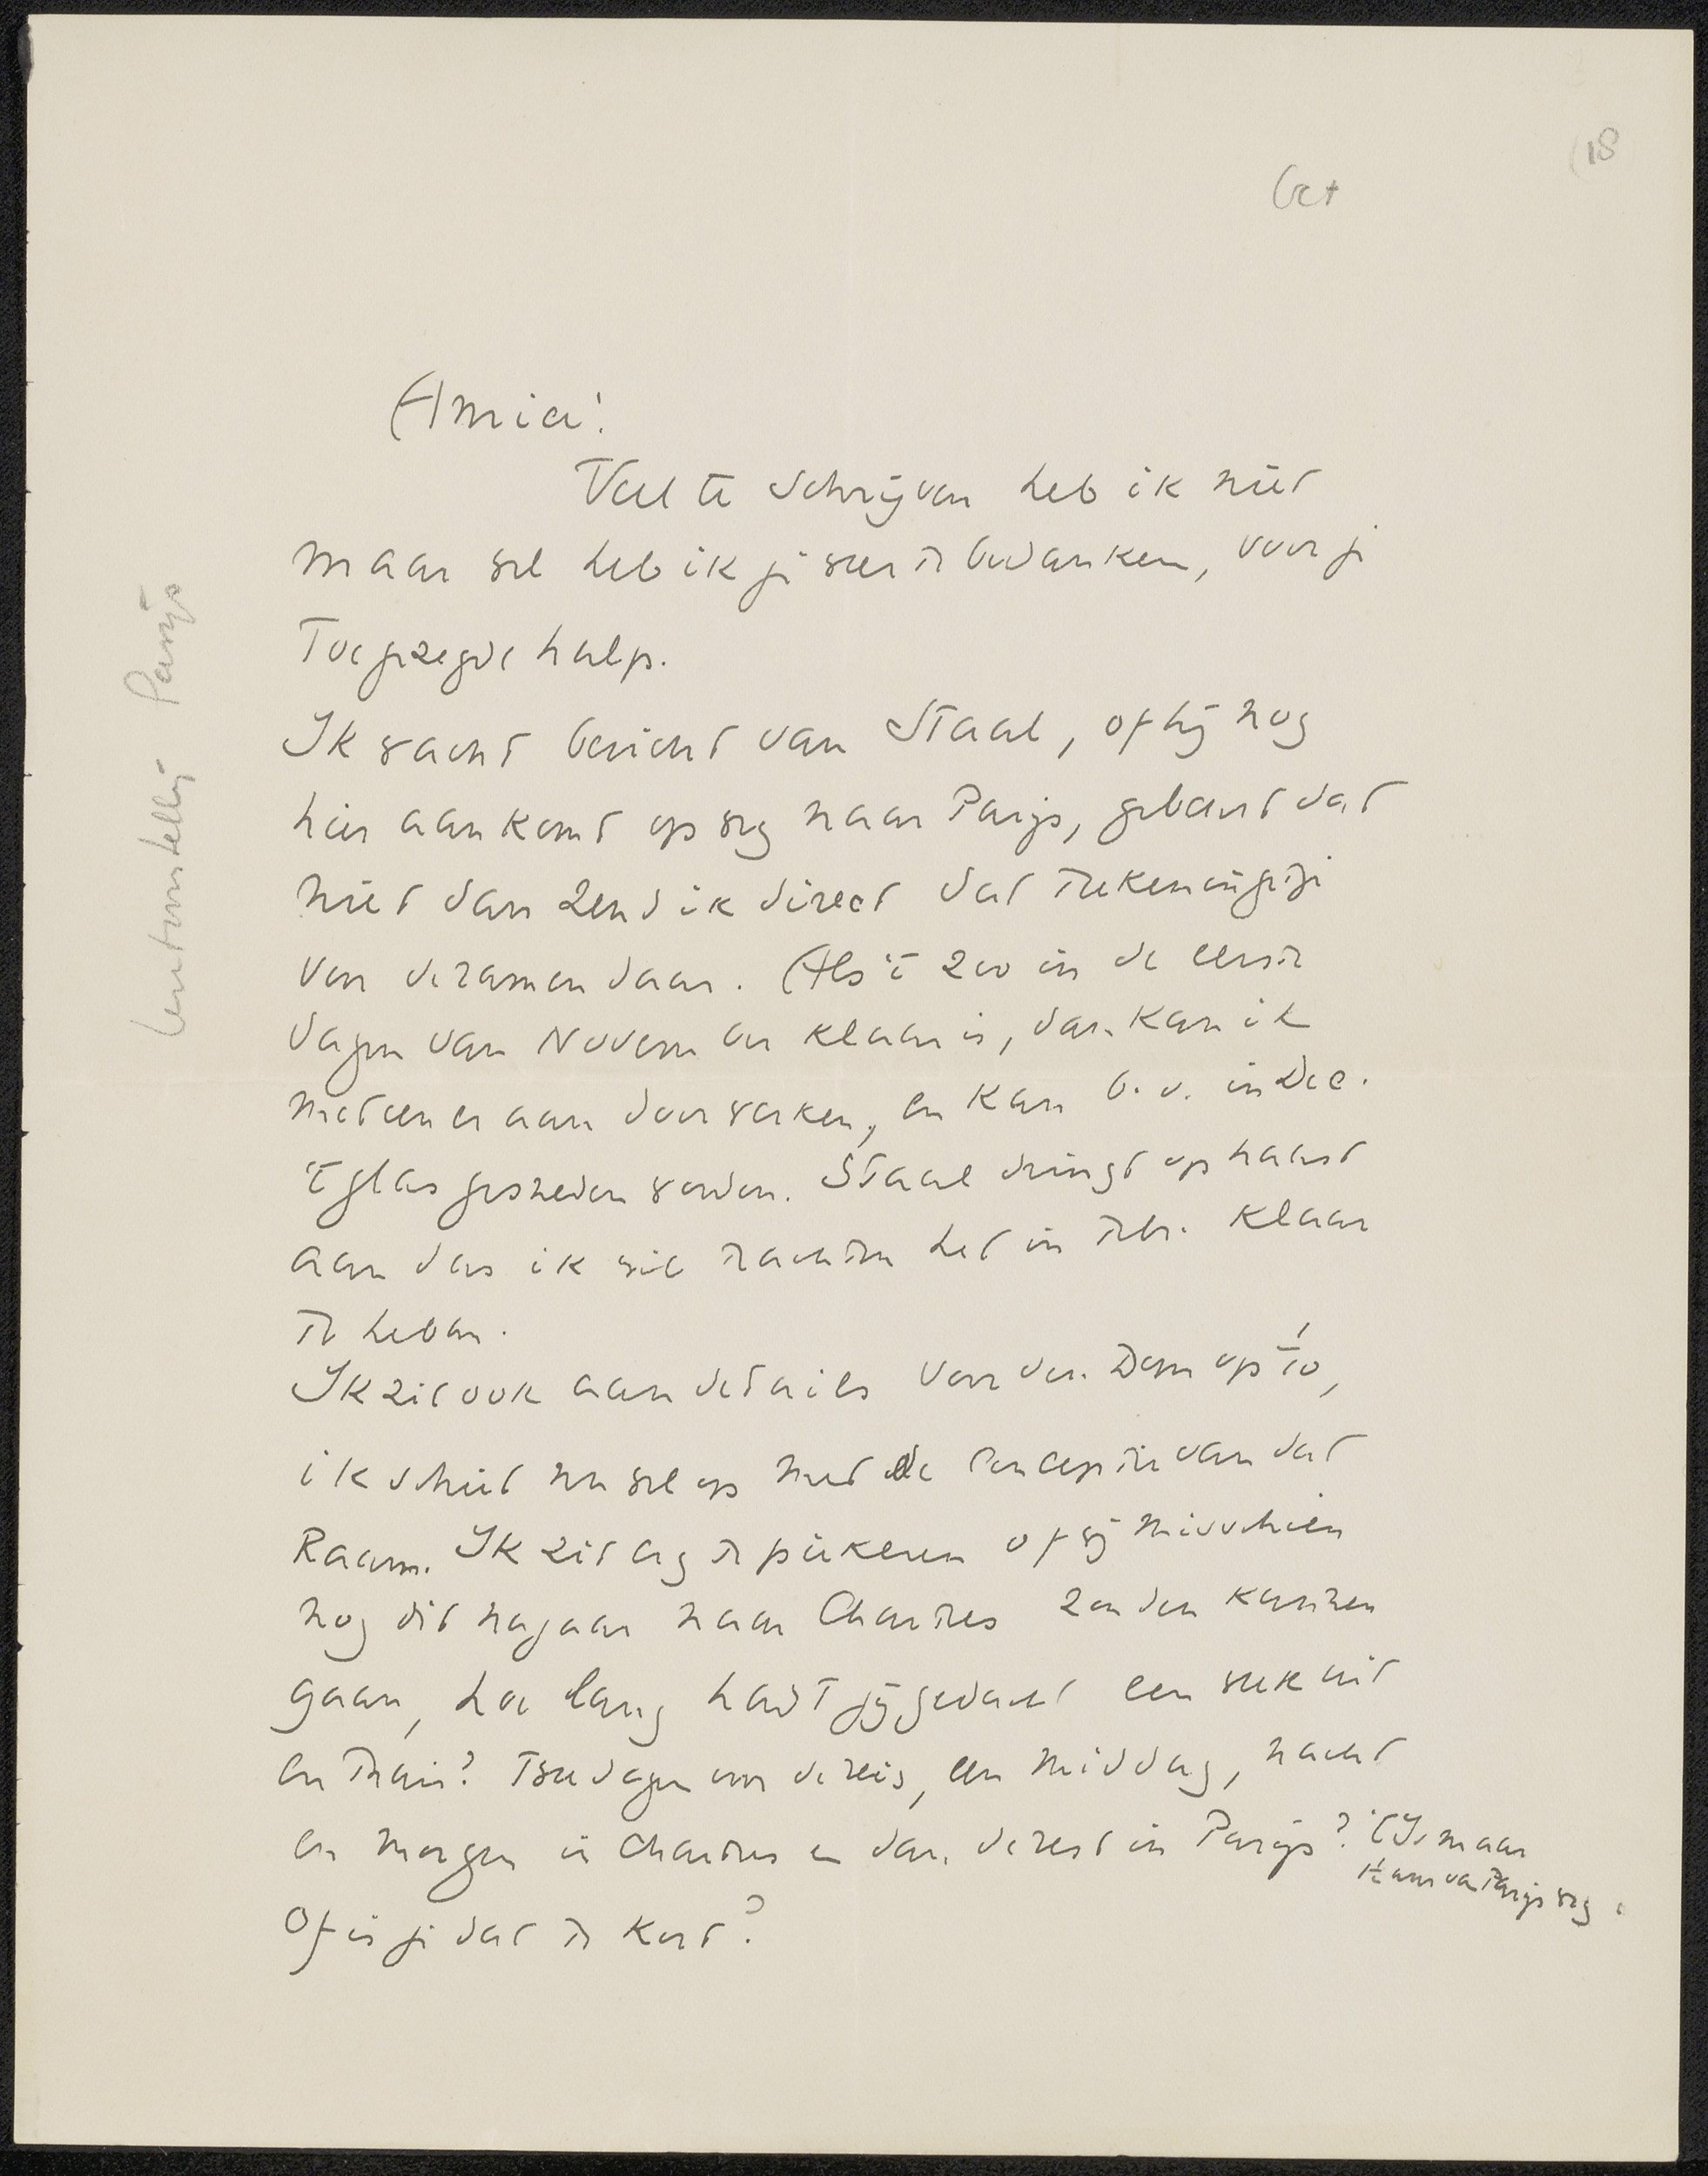 (18
Oct
Amice!
Veel te schrijven heb ik niet
maar wel heb ik je weer te bedanken, voor je
toegezegde hulp.
Ik wacht bericht van Staal, of hij nog
hier aankomt op weg naar Parijs, gebeurt dat
niet dan zend ik direct dat tekeningetje
van de ramen daar. Als 't zoo in de eerste
dagen van November klaar is, dan kan ik
meteen er aan doorwerken, en kan b.v. in Dec.
't glas gesneden worden. Staal dringt op haast
aan dus ik wil trachten het in Febr. klaar
te hebben.
Ik zit ook aan details voor den Dom op 1/10,
ik schiet nu wel op met de conceptie van dat
Raam. Ik zit erg te piekeren of wij misschien
nog dit najaar naar Chartres zouden kunnen
gaan, hoe lang hadt jij gedacht een week uit
en thuis? Twee dagen voor de reis, een middag, nacht
en morgen in Chartres en dan de rest in Parijs? 't Is maar
1½ uur van Parijs weg.
Of is je dat te kort?
tentoonstelling Parijs